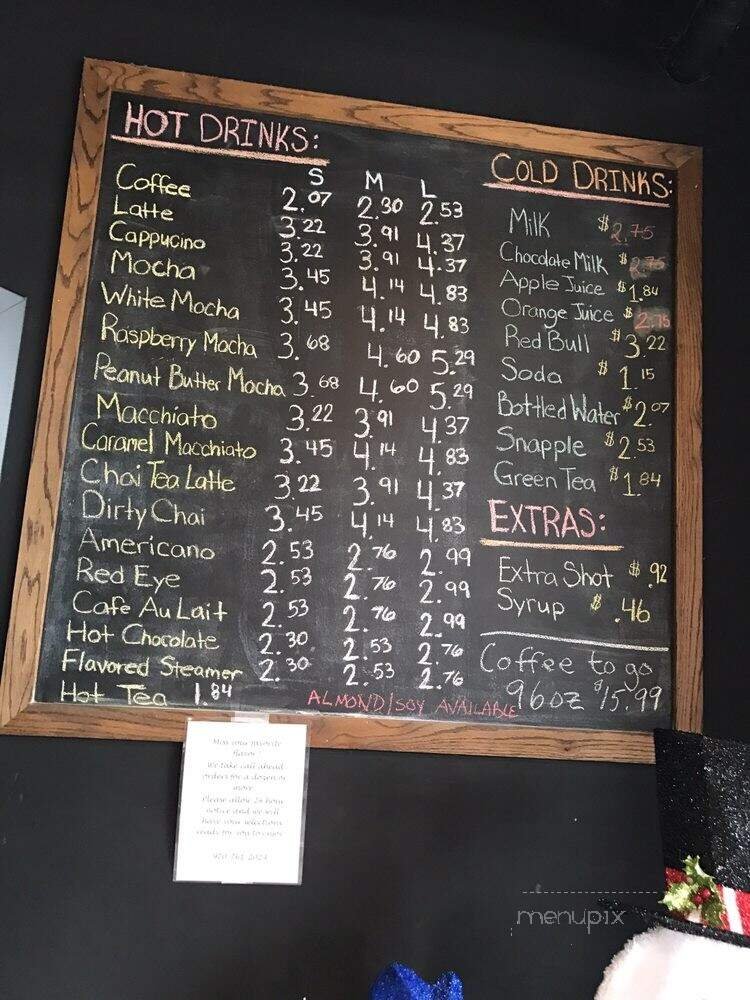 HOT DRINKS:
S M L
Coffee 2.07 2.30 2.53
Latte 3.22 3.91 4.37
Cappucino 3.22 3.91 4.37
Mocha 3.45 4.14 4.83
White Mocha 3.45 4.14 4.83
Raspberry Mocha 3.68 4.60 5.29
Peanut Butter Mocha 3.68 4.60 5.29
Macchiato 3.22 3.91 4.37
Caramel Macchiato 3.45 4.14 4.83
Chai Tea Latte 3.22 3.91 4.37
Dirty Chai 3.45 4.14 4.83
Americano 2.53 2.76 2.99
Red Eye 2.53 2.76 2.99
Cafe Au Lait 2.53 2.76 2.99
Hot Chocolate 2.30 2.53 2.76
Flavored Steamer 2.30 2.53 2.76
Hot Tea 1.84
ALMOND/SOY AVAILABLE
COLD DRINKS:
Milk $2.75
Chocolate Milk $2.75
Apple Juice $1.84
Orange Juice $2.75
Red Bull $3.22
Soda $1.15
Bottled Water $2.07
Snapple $2.53
Green Tea $1.84
EXTRAS:
Extra Shot $.92
Syrup $.46
Coffee to go
96oz $15.99
Miss your favorite
flavor
We take call ahead
orders for a dozen or
more
Please allow 24 hour
notice and we will
have your selections
ready for you to enjoy
menupix